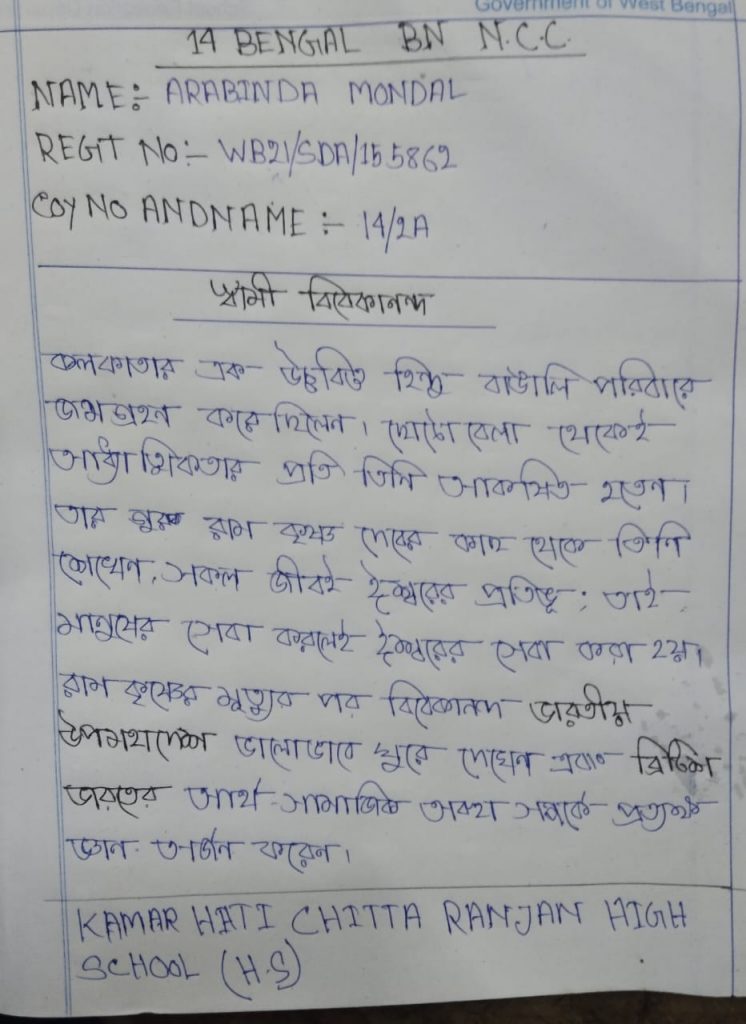 Government of West Bengal
14 BENGAL BN N.C.C.
NAME:- ARABINDA MONDAL
REGIT NO:- WB21/SDA/155862
COY NO AND NAME :- 14/2A
স্বামী বিবেকানন্দ
কলকাতার এক উচ্চবিত্ত হিন্দু বাঙালি পরিবারে
জন্মগ্রহন করেছিলেন। ছোটোবেলা থেকেই
আধ্যাত্মিকতার প্রতি তিনি আকর্ষিত হতেন।
তার গুরু রাম কৃষ্ণ দেবের কাছ থেকে তিনি
শেখেন, সকল জীবই ঈশ্বরের প্রতিভূ; তাই
মানুষের সেবা করলেই ঈশ্বরের সেবা করা হয়।
রাম কৃষ্ণের মৃত্যুর পর বিবেকানন্দ ভারতীয়
উপমহাদেশ ভালোভাবে ঘুরে দেখেন এবং ব্রিটিশ
ভারতের আর্থ-সামাজিক অবস্থা সম্পর্কে প্রত্যক্ষ
জ্ঞান অর্জন করেন।
KAMARHATI CHITTA RANJAN HIGH
SCHOOL (H.S)